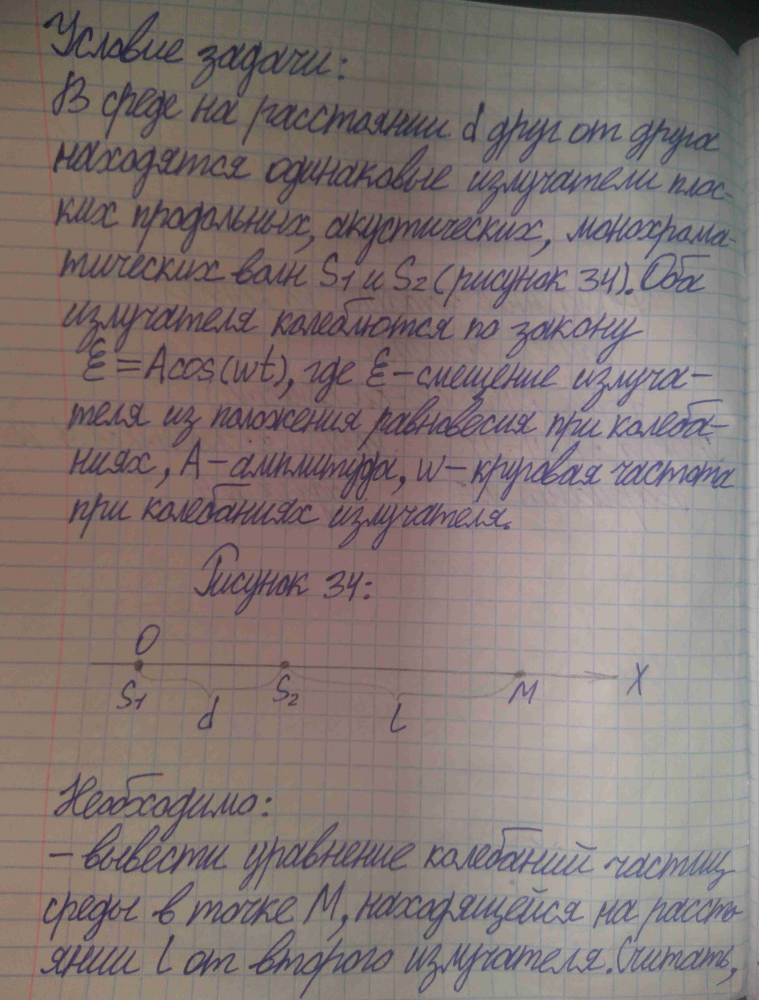 Условие задачи:
В среде на расстоянии d друг от друга
находятся одинаковые излучатели плос-
ких продольных, акустических, монохрома-
тических волн S1 и S2 (рисунок 34). Оба
излучателя колеблются по закону
ξ = Acos(wt), где ξ - смещение излуча-
теля из положения равновесия при колеба-
ниях, A - амплитуда, w - круговая частота
при колебаниях излучателя.
Рисунок 34:
O
S1 d S2 l M X
Необходимо:
- вывести уравнение колебаний частиц
среды в точке M, находящейся на рассто-
янии l от второго излучателя. Считать,